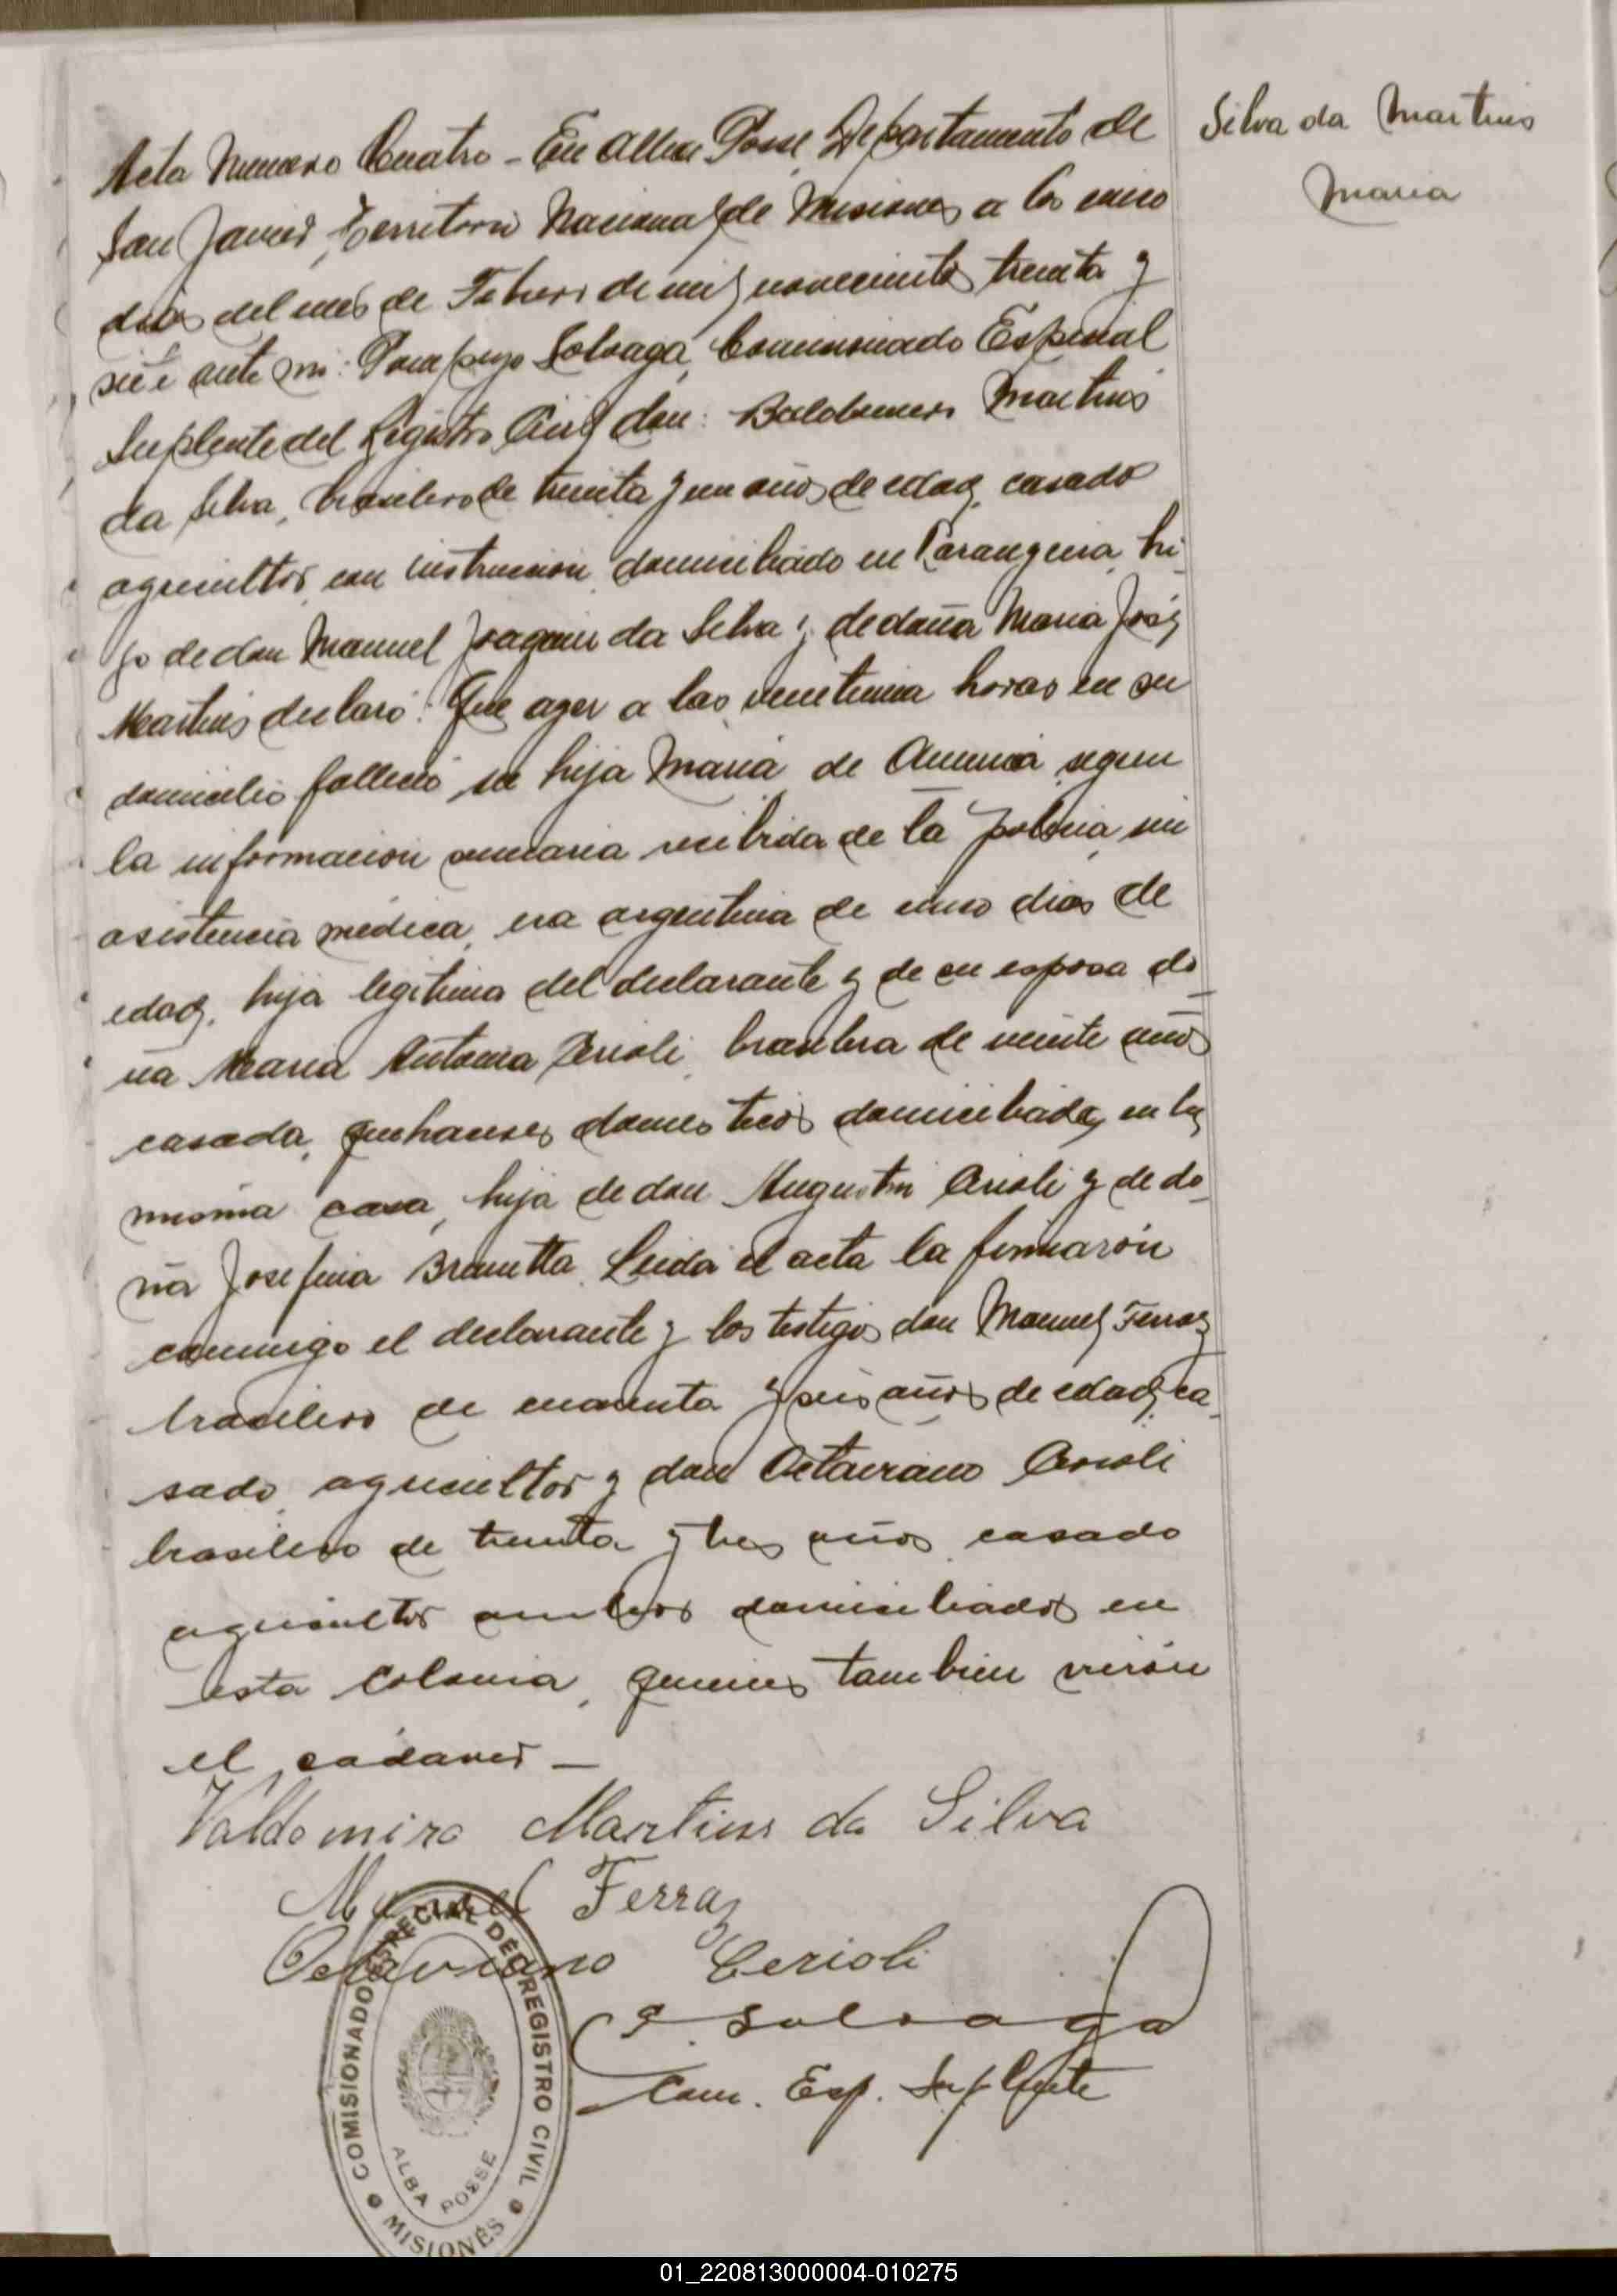 Silva da Martins
Maria
Acta Numero Cuatro - En Alba Posse, Departamento de
San Javier, Territorio Nacional de Misiones a los cinco
dias del mes de Febrero de mil novecientos treinta y
siete ante mi: Pompeyo Soloaga, Comisionado Especial
Suplente del Registro Civil don: Baldomero Martins
da Silva, brasilero de treinta y un años de edad, casado
agricultor, con instruccion, domiciliado en hi-
jo de don Manuel Joaquin da Silva y de doña Maria José
Martins declaró: Que ayer a las veintiuna horas en su
domicilio falleció su hija Maria de segun
la informacion sumaria recibida de la policia, sin
asistencia médica, era argentina de cinco dias de
edad, hija legitima del declarante y de su esposa do-
ña Maria Antonia Cerioli, brasilera de veinte años
casada, quehaceres domesticos domiciliada en la
misma casa, hija de don Augustin Cerioli y de do-
ña Josefina Brunetta. Leida el acta la firmarón
conmigo el declarante y los testigos don Manuel Ferraz
brasilero de cuarenta y seis años de edad, ca-
sado, agricultor y don Octaviano Cerioli
brasilero de treinta y tres años, casado
agricultor ambos domiciliados en
esta Colonia, quienes tambien virón
el cadaver -
Valdomiro Martins da Silva
Manoel Ferraz
Octaviano Cerioli
P. Soloaga
Com. Esp. Suplente
COMISIONADO ESPECIAL DEL REGISTRO CIVIL
ALBA POSSE
MISIONES
01_220813000004-010275